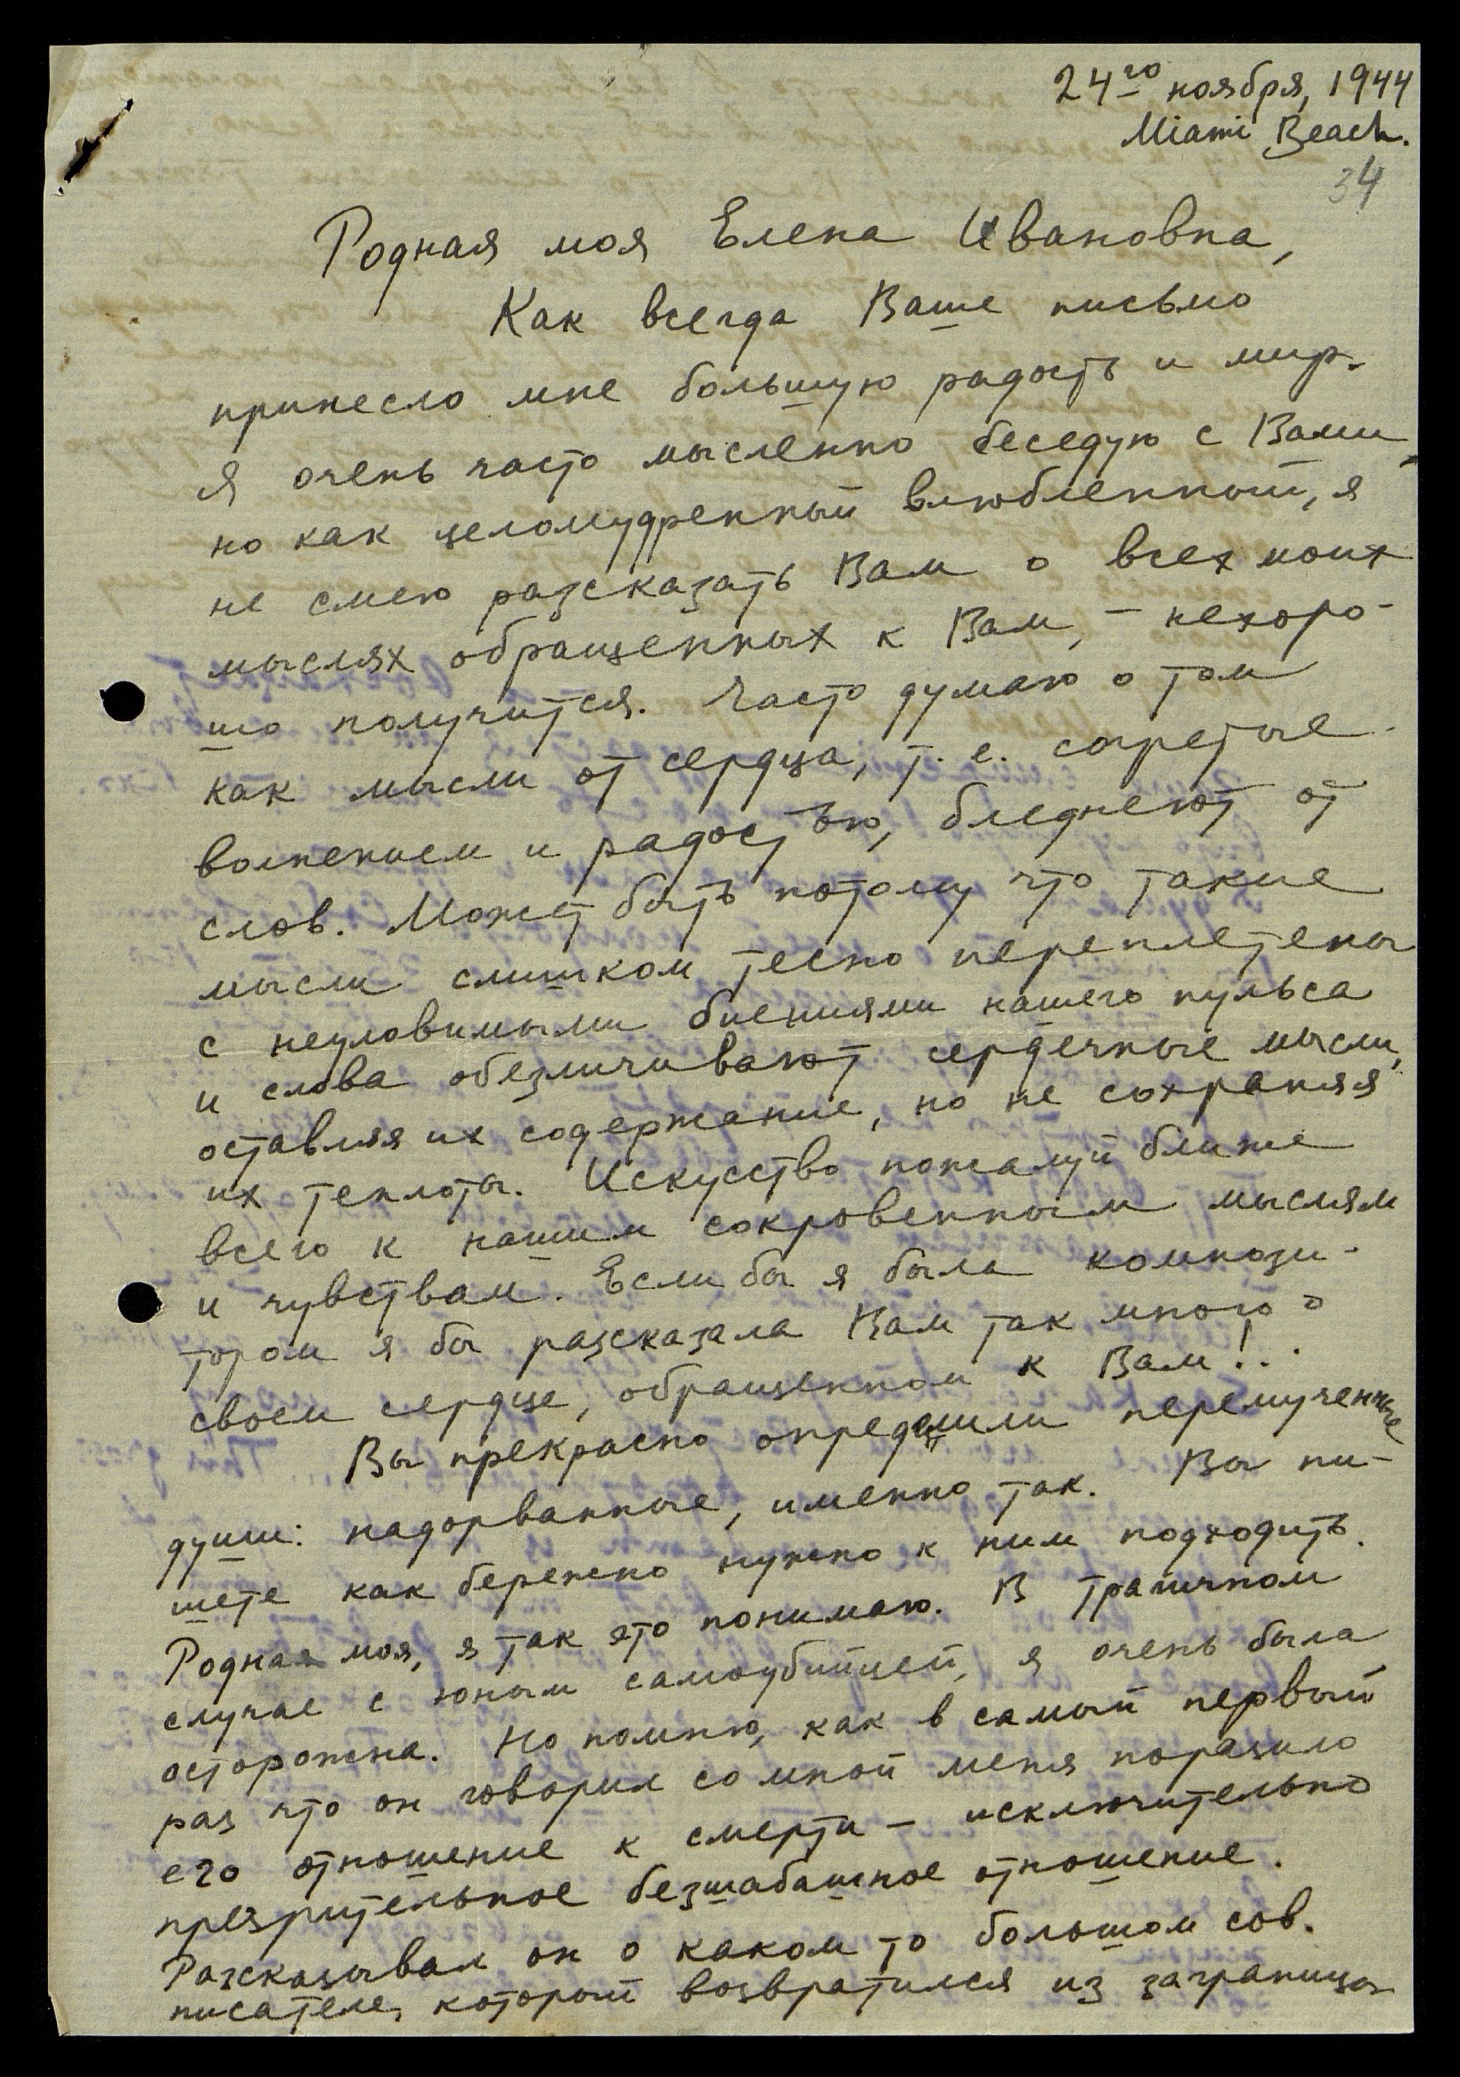 24го ноября, 1944
Miami Beach.
34
Родная моя Елена Ивановна,
Как всегда Ваше письмо
принесло мне большую радость и мир.
Я очень часто мысленно беседую с Вами,
но как целомудренный влюбленный, я
не смею разсказать Вам о всех моих
мыслях обращенных к Вам, – нехоро-
шо получится. Часто думаю о том
как мысли от сердца, т. е. согретые
волнением и радостью, бледнеют от
слов. Может быть потому что такие
мысли слишком тесно переплетены
с неуловимыми биениями нашего пульса
и слова обезличивают сердечные мысли,
оставляя их содержание, но не сохраняя
их теплоты. Искусство пожалуй ближе
всего к нашим сокровенным мыслям
и чувствам. Если бы я была компози-
тором я бы разсказала Вам так много о
своем сердце, обращенном к Вам!..
Вы прекрасно определили перемученные
души: надорванные, именно так. Вы пи-
шете как бережно нужно к ним подходить.
Родная моя, я так это понимаю. В трагичном
случае с юным самоубийцей, я очень была
осторожна. Но помню, как в самый первый
раз что он говорил со мной меня поразило
его отношение к смерти – исключительно
презрительное безшабашное отношение.
Разсказывал он о каком то большом сов.
писателе, который возвратился из заграницы